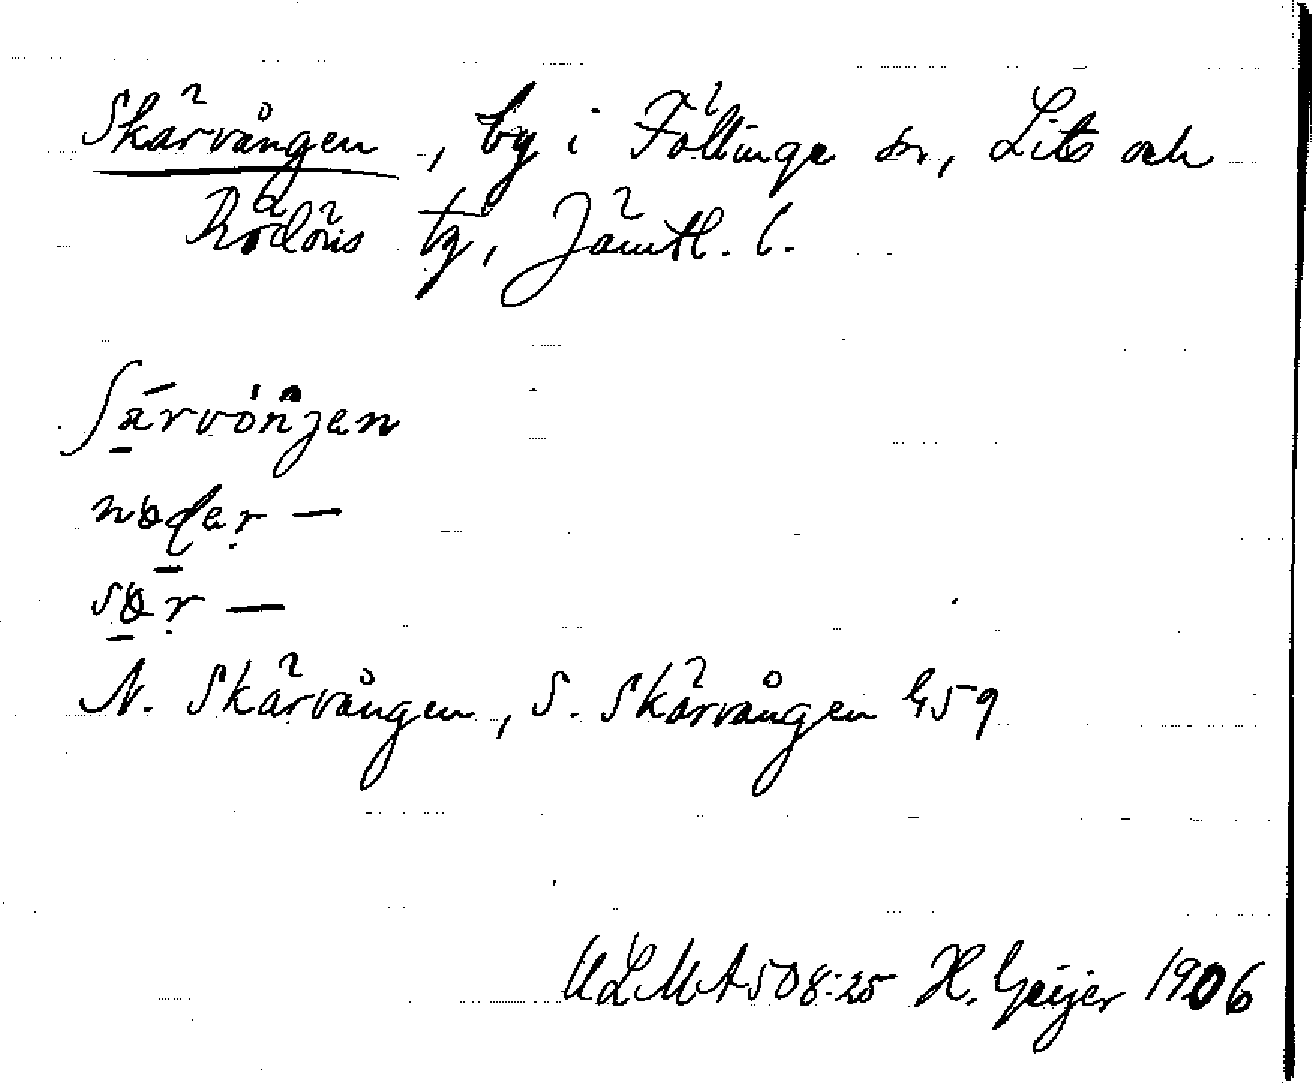 Skärvången, by i Föllinge sn, Lits och
Rödöns tg, Jämtl. l.
N. Skärvången, S. Skärvången G59
ULMA 508:25 H. Geijer 1906